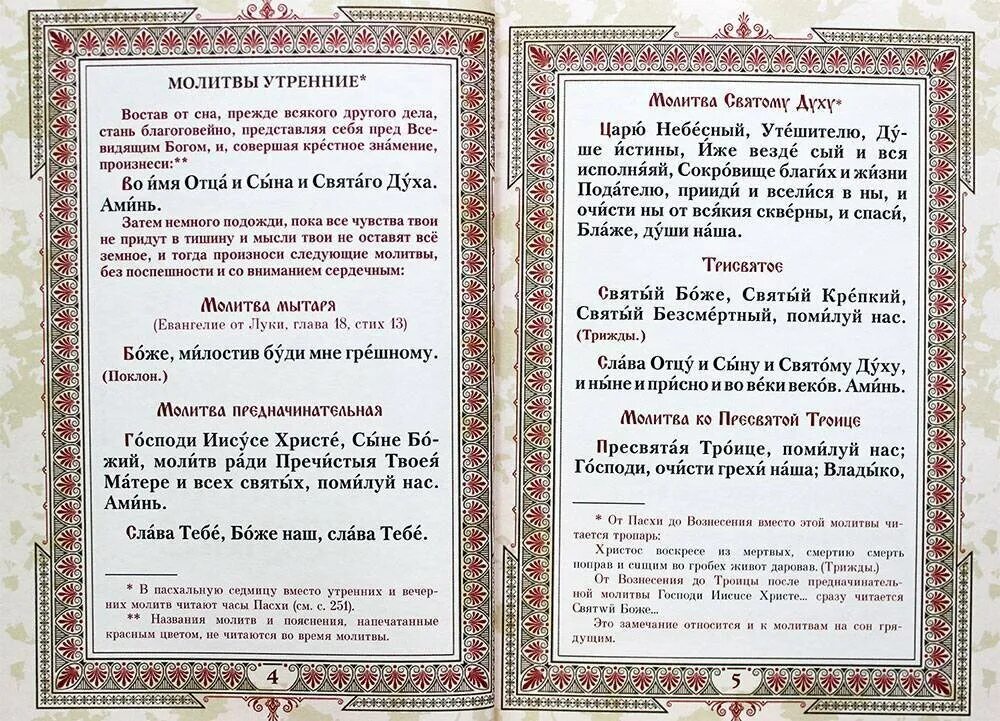 МОЛИТВЫ УТРЕННИЕ*
Востав от сна, прежде всякого другого дела,
стань благоговейно, представляя себя пред Все-
видящим Богом, и, совершая кре́стное зна́мение,
произнеси:**
Во и́мя Отца́ и Сы́на и Свята́го Ду́ха.
Ами́нь.
Затем немного подожди, пока все чувства твои
не придут в тишину и мысли твои не оставят всё
земное, и тогда произноси следующие молитвы,
без поспешности и со вниманием сердечным:
Молитва мытаря
(Евангелие от Луки, глава 18, стих 13)
Бо́же, ми́лостив бу́ди мне гре́шному.
(Поклон.)
Молитва предначинательная
Го́споди Иису́се Христе́, Сы́не Бо́-
жий, моли́тв ра́ди Пречи́стыя Твоея́
Ма́тере и всех святы́х, поми́луй нас.
Ами́нь.
Сла́ва Тебе́, Бо́же наш, сла́ва Тебе́.
* В пасхальную седмицу вместо утренних и вечер-
них молитв читают часы Пасхи (см. с. 251).
** Названия молитв и пояснения, напечатанные
красным цветом, не читаются во время молитвы.
4
Молитва Святому Духу*
Царю́ Небе́сный, Уте́шителю, Ду́-
ше и́стины, И́же везде́ сый и вся
исполня́яй, Сокро́вище благи́х и жи́зни
Пода́телю, прииди́ и всели́ся в ны, и
очи́сти ны от вся́кия скве́рны, и спаси́,
Бла́же, ду́ши на́ша.
Трисвятое
Святы́й Бо́же, Святы́й Кре́пкий,
Святы́й Безсме́ртный, поми́луй нас.
(Трижды.)
Сла́ва Отцу́ и Сы́ну и Свято́му Ду́ху,
и ны́не и при́сно и во ве́ки веко́в. Ами́нь.
Молитва ко Пресвятой Троице
Пресвята́я Тро́ице, поми́луй нас;
Го́споди, очи́сти грехи́ на́ша; Влады́ко,
* От Пасхи до Вознесения вместо этой молитвы чи-
тается тропарь:
Христос воскресе из мертвых, смертию смерть
поправ и сущим во гробех живот даровав. (Трижды.)
От Вознесения до Троицы после предначинатель-
ной молитвы Господи Иисусе Христе... сразу читается
Святый Боже...
Это замечание относится и к молитвам на сон гря-
дущим.
5